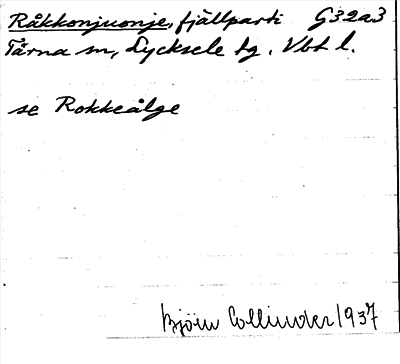 Råkkonjuonje, fjällparti G32a3
Tärna sn, Lycksele tg. Vbt l.
se Rokkeålge
Björn Collinder 1937